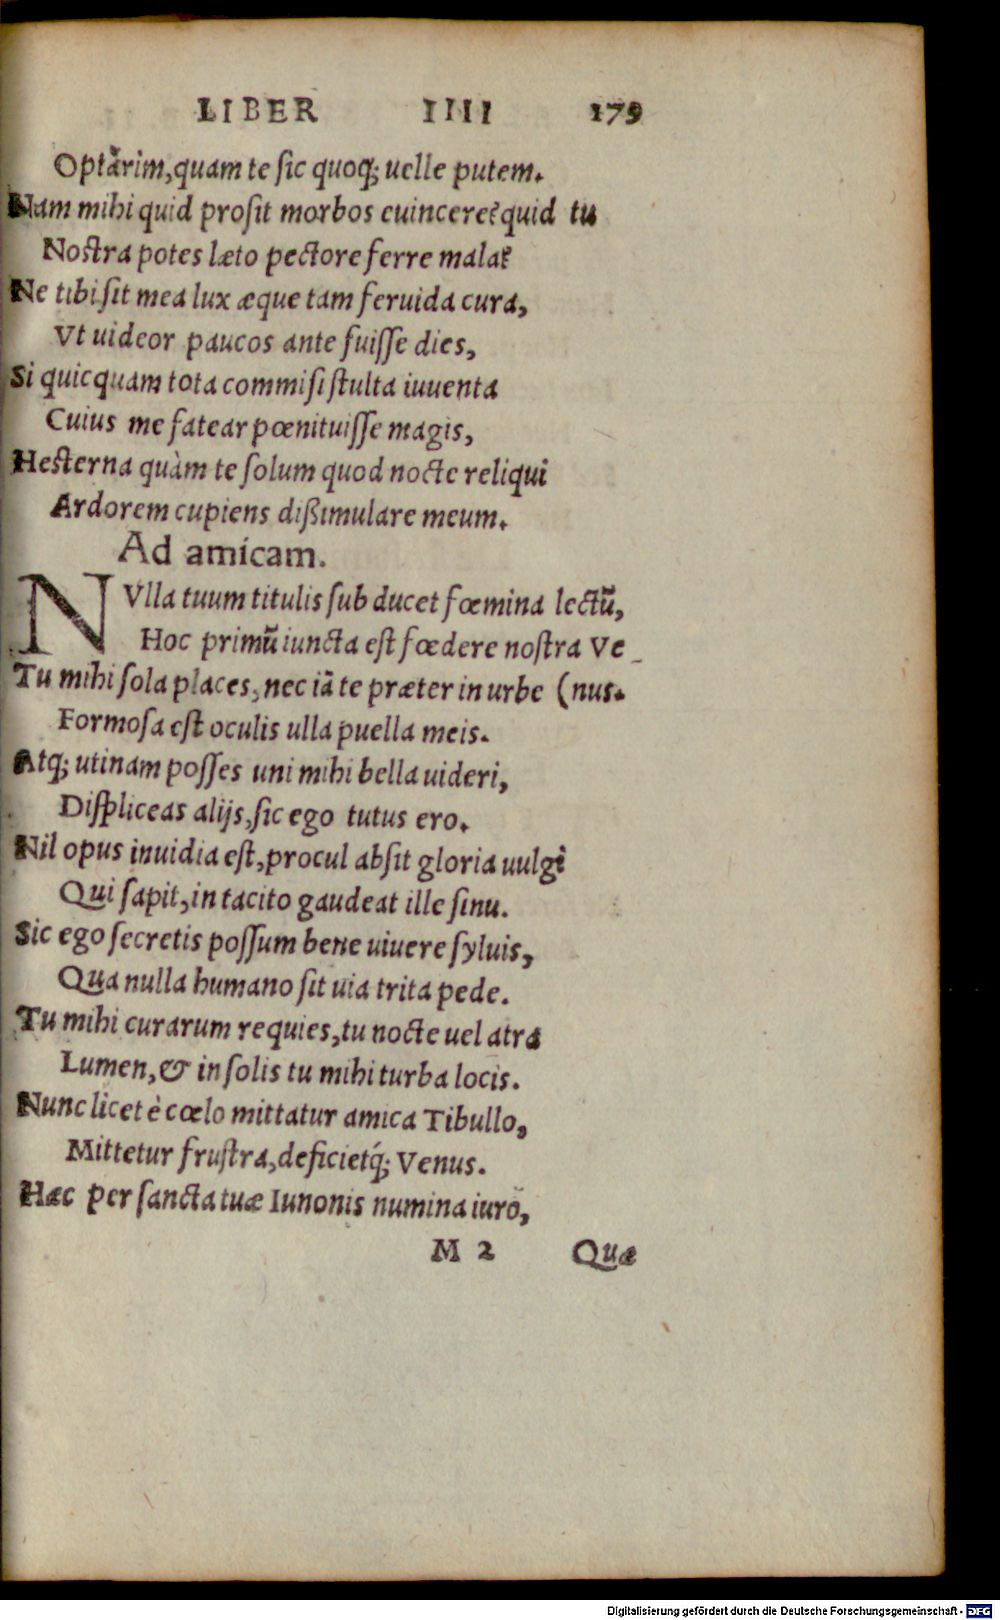 LIBER IIII 179
Optārim,quam te ſic quoq; uelle putem.
Nam mihi quid proſit morbos euincere?quid tu
Noſtra potes læto pectore ferre mala?
Ne tibi ſit mea lux æque tam feruida cura,
Vt uideor paucos ante fuiſſe dies,
Si quicquam tota commiſi ſtulta iuuenta
Cuius me fatear pœnituiſſe magis,
Heſterna quàm te ſolum quod nocte reliqui
Ardorem cupiens dißimulare meum.
Ad amicam.
NVlla tuum titulis ſub ducet fœmina lectū,
Hoc primū iuncta eſt fœdere noſtra Ve_
Tu mihi ſola places, nec iā te præter in urbe (nus.
Formoſa eſt oculis ulla puella meis.
Atq; utinam poſſes uni mihi bella uideri,
Diſpliceas alijs,ſic ego tutus ero.
Nil opus inuidia eſt,procul abſit gloria uulgi
Qui ſapit,in tacito gaudeat ille ſinu.
Sic ego ſecretis poſſum bene uiuere ſyluis,
Qua nulla humano ſit uia trita pede.
Tu mihi curarum requies,tu nocte uel atra
Lumen,& in ſolis tu mihi turba locis.
Nunc licet è cœlo mittatur amica Tibullo,
Mittetur fruſtra,deficietq́; Venus.
Hæc per ſancta tuæ Iunonis numina iuro,
M 2 Quæ
Digitalisierung gefördert durch die Deutsche Forschungsgemeinschaft - DFG